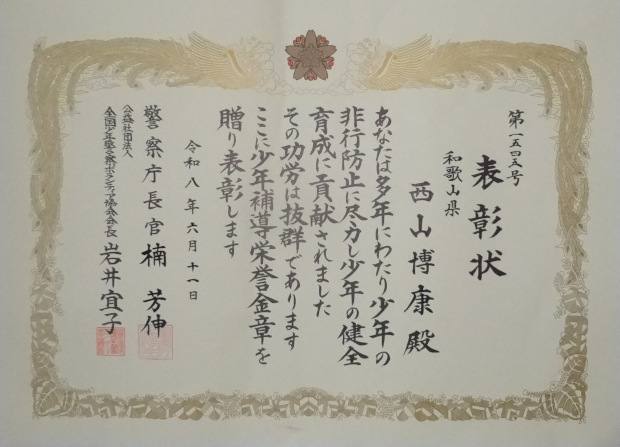 第一五四五号
表彰状
和歌山県
西山博康殿
あなたは多年にわたり少年の
非行防止に尽力し少年の健全
育成に貢献されました
その功労は抜群であります
ここに少年補導栄誉金章を
贈り表彰します
令和八年六月十一日
警察庁長官 楠 芳伸
公益社団法人
全国少年警察ボランティア協会会長 岩井宜子